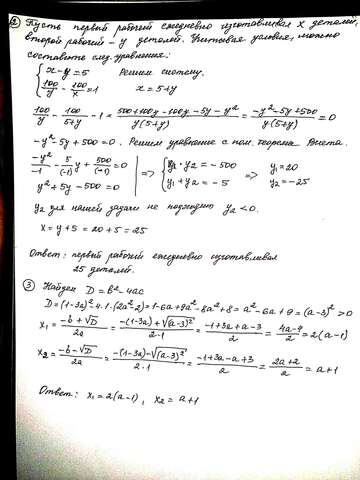 ② Пусть первый рабочий ежедневно изготавливал x деталей,
второй рабочий - y деталей. Учитывая условия, можно
составить след. уравнения:
{ x - y = 5 Решим систему.
100/y - 100/x = 1 x = 5+y
100/y - 100/(5+y) - 1 = (500+100y-100y-5y-y²)/(y(5+y)) = (-y²-5y+500)/(y(5+y)) = 0
-y²-5y+500=0. Решим уравнение с пом. теоремы Виета.
-y²/-1 - 5/(-1) y + 500/(-1) = 0 | => { y₁·y₂ = -500 => y₁=20
y²+5y-500=0 | y₁+y₂ = -5 y₂=-25
y₂ для нашей задачи не подходит y₂<0.
x = y+5 = 20+5 = 25
Ответ: первый рабочий ежедневно изготавливал
25 деталей.
③ Найдем D = b²-4ac
D=(1-3a)²-4·1·(2a²-2)=1-6a+9a²-8a²+8=a²-6a+9=(a-3)²>0
x₁ = (-b+√D)/2a = (-(1-3a)+√(a-3)²)/(2·1) = (-1+3a+a-3)/2 = (4a-4)/2 = 2(a-1)
x₂ = (-b-√D)/2a = (-(1-3a)-√(a-3)²)/(2·1) = (-1+3a-a+3)/2 = (2a+2)/2 = a+1
Ответ: x₁ = 2(a-1), x₂ = a+1